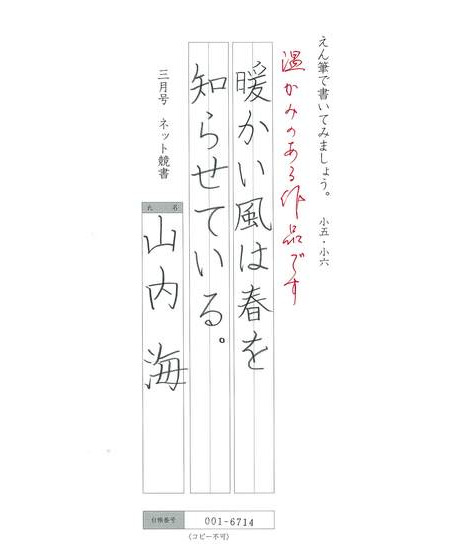 えん筆で書いてみましょう。 小五・小六
温かみのある作品です
暖かい風は春を
知らせている。
三月号 ネット競書
氏名
山内海
台帳番号 001-6714
(コピー不可)